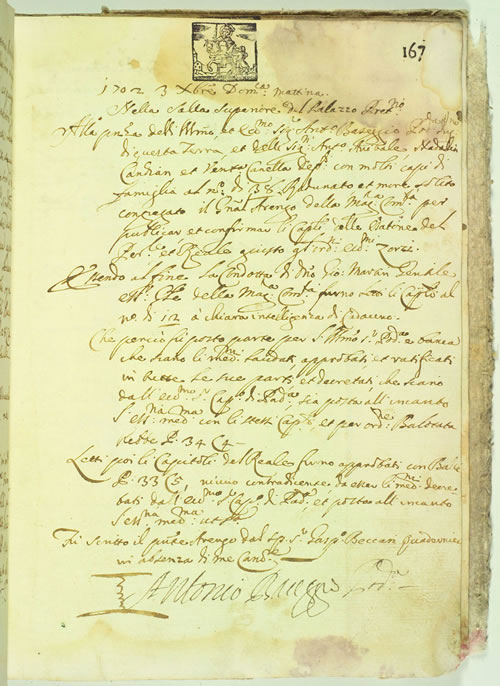 167
1702 3 Xbre Dom.ca mattina
Nella Salla Superiore del Palazzo Pret.o
Alla pnza dell Illmo et Ecc.mo Sig.r Ant.o
di questa Terra et delli Sig.ri Anibale
et Ventura Canella Dep.ti con molti capi di
famiglia al n.o di 38. Radunato et more solito
congregato il Gnal Arengo della Mag.ca Com.tà per
publicar et confirmar li Cap.li alle Datione del
et Reale giusto gl ord.ni Ecc.mo Zorzi.
Essendo al fine la Condotta di Gio: Maria
della Mag.ca Com.tà furno letti li Cap.li al
n.o di 12 à chiara intelligenza di Cadauno.
Che perciò fù posto parte per S. Illmo S.r Pod.tà e banca
che siano li med.mi laudati, approbati et ratificati
in tutte le sue parti, et decretati, che siano
dall Ecc.mo S.r Cap.o di Pad.a, sia posta all incanto
con li stessi Cap.li, et per ord.ne Balotata
hebbe P: 34 C 4
Letti poi li Capitoli del Reale furno approbati con Balle
P: 33 C 5, niuno contradicente da esser li med.mi decre-
tati dall Ecc.mo S.r Cap.o di Pad.a, et posta all incanto
Fù scritto il pnte Arengo dal Sp. S.r Gasp.o Beccari Quadernier
in absenza di me Canc.re
Antonio Pod.tà